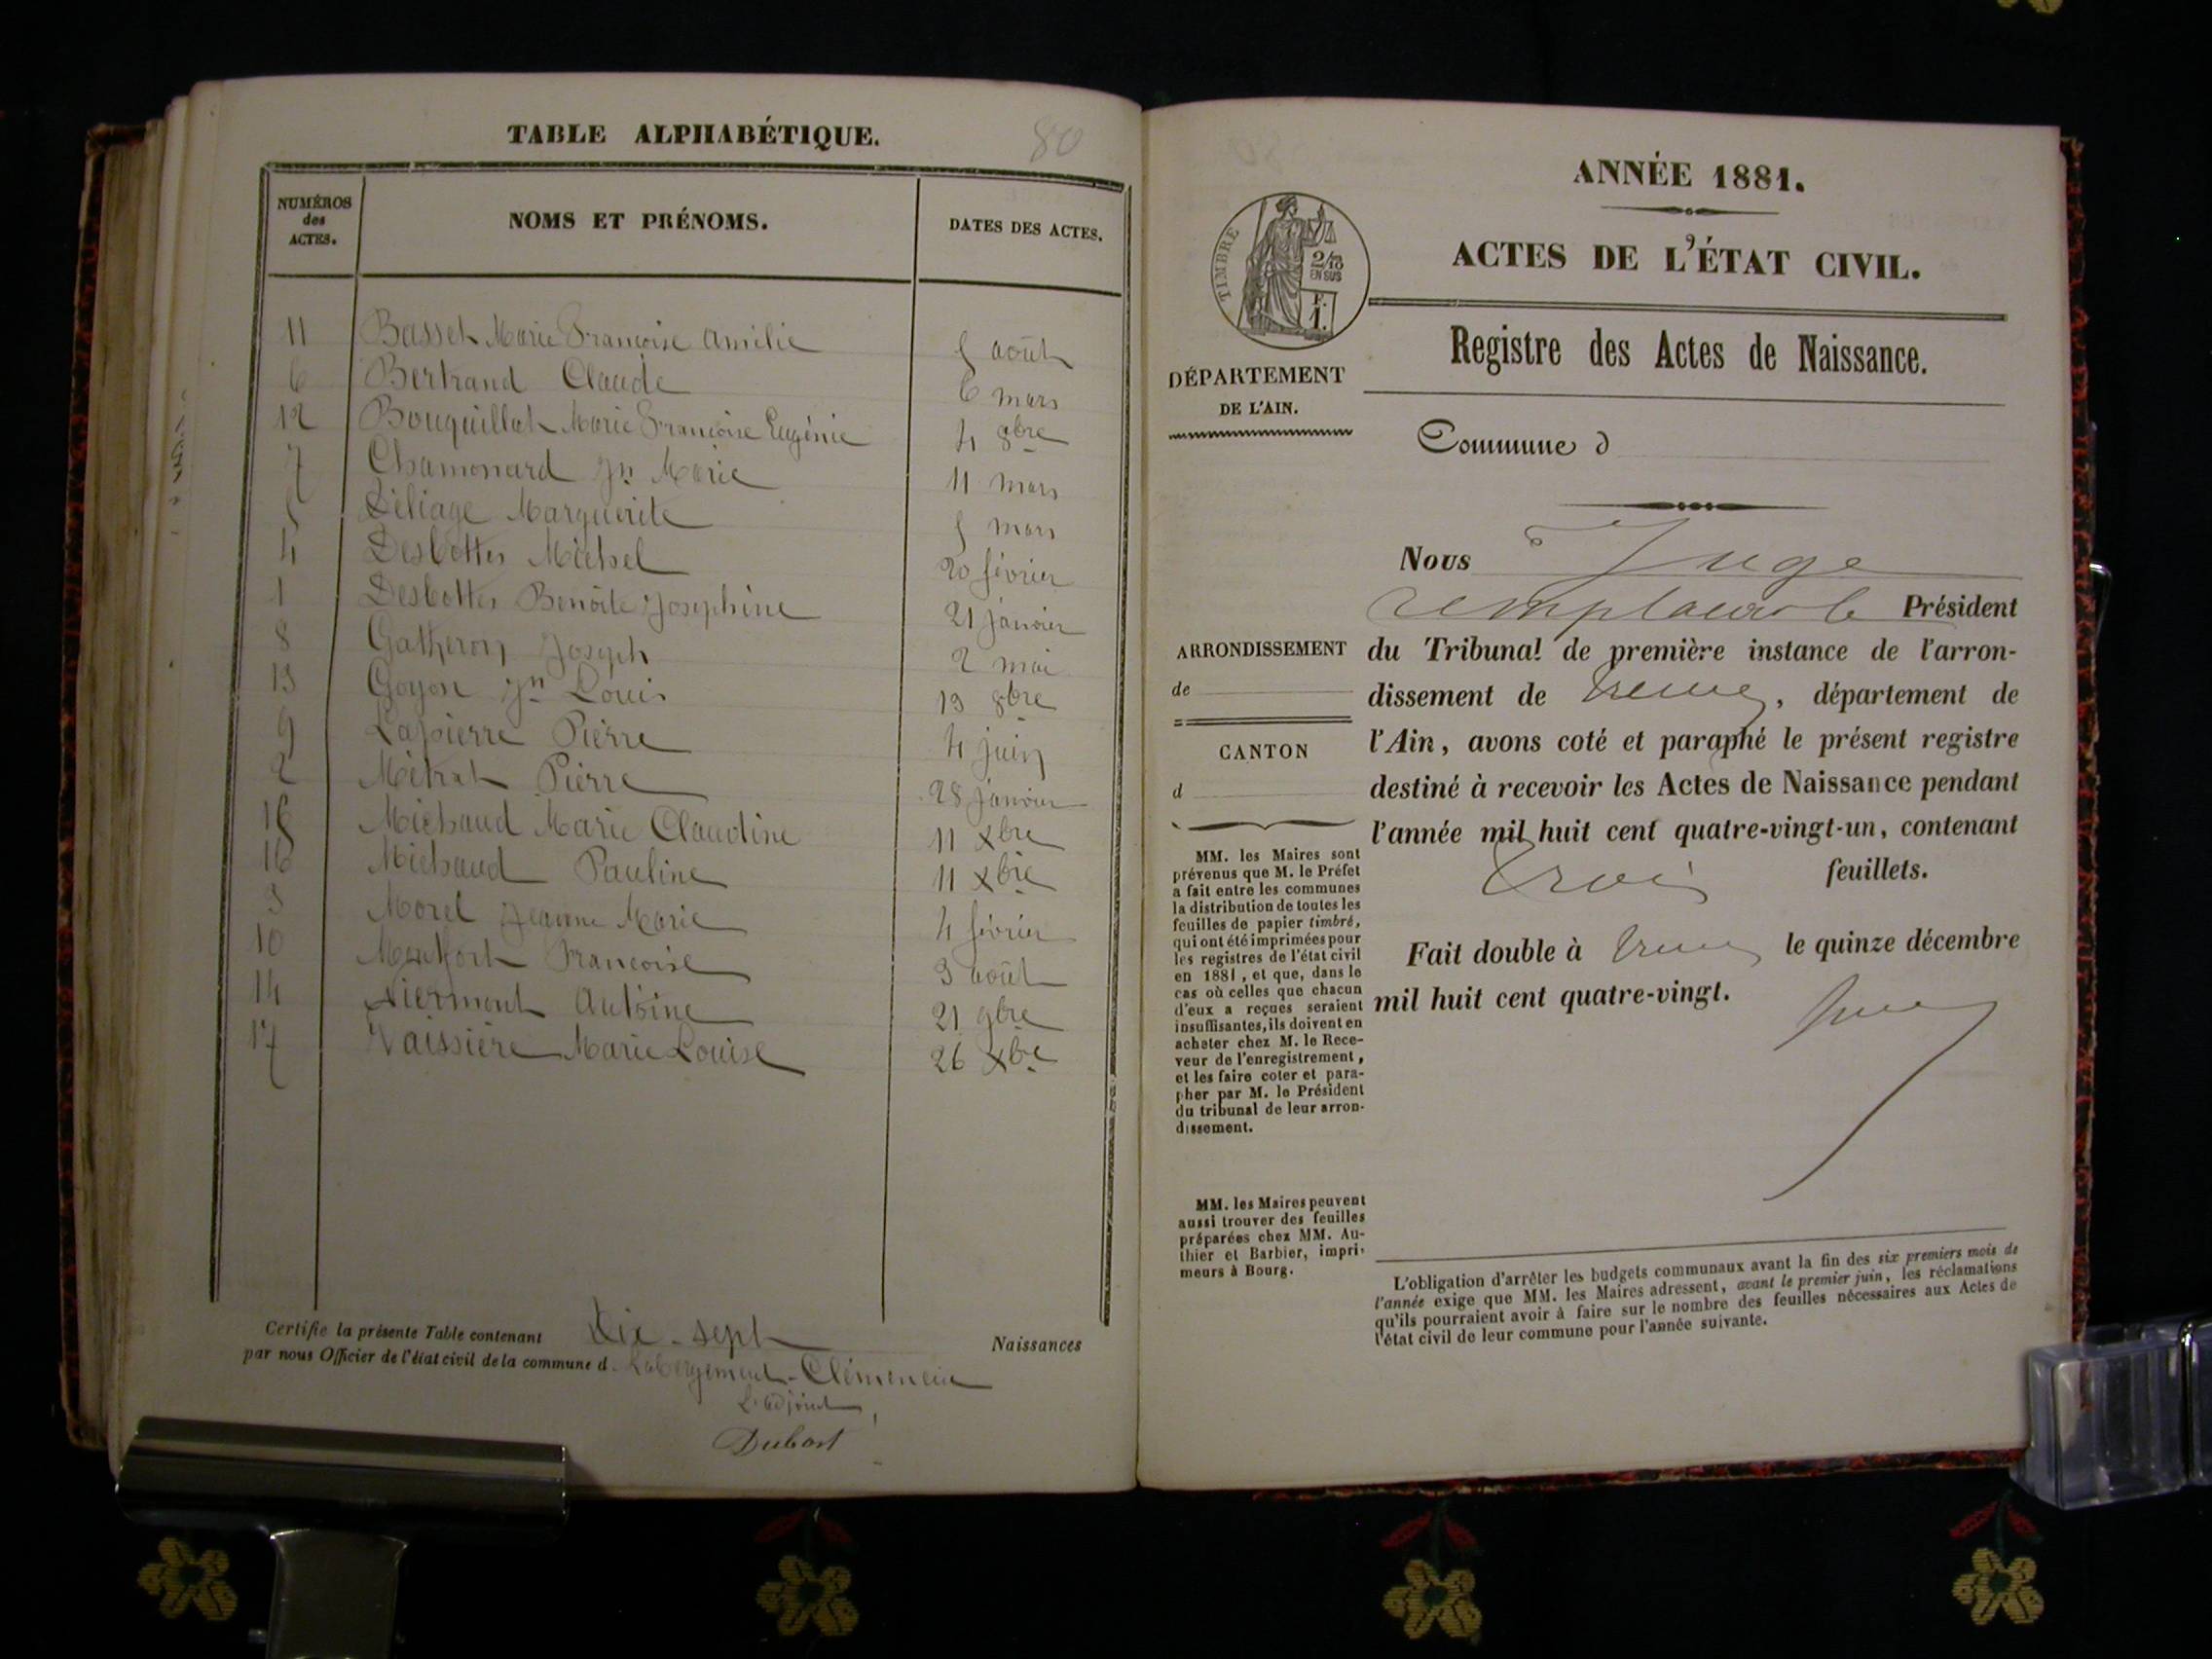 TABLE ALPHABÉTIQUE.
80
NUMÉROS
des
ACTES.
NOMS ET PRÉNOMS.
DATES DES ACTES.
11 Basset Marie Françoise Amélie 5 août
6 Bertrand Claude 6 mars
12 Bouquillat Marie Françoise Eugénie 4 8bre
7 Chamonard Jn Marie 11 mars
5 Déliage Marguerite 5 mars
4 Desbottes Michel 20 février
1 Desbottes Benoîte Joséphine 21 janvier
8 Gatheron Joseph 2 mai
13 Goyon Jn Louis 13 8bre
9 Lapierre Pierre 4 juin
2 Métrat Pierre 28 janvier
15 Michaud Marie Claudine 11 Xbre
16 Michaud Pauline 11 Xbre
3 Morel Jeanne Marie 4 février
10 Monfort Francoise 3 août
14 Niermont Antoine 21 9bre
17 Vaissière Marie Louise 26 Xbre
Certifie la présente Table contenant Dix-sept Naissances
par nous Officier de l'état civil de la commune d Labergement-Clémencia
L'adjoint,
Dubost
ANNÉE 1881.
ACTES DE L'ÉTAT CIVIL.
TIMBRE
2/10
EN SUS
F.
1.
Registre des Actes de Naissance.
DÉPARTEMENT
DE L'AIN.
Commune d
Nous Juge
remplaçant le Président
ARRONDISSEMENT
de
du Tribunal de première instance de l'arron-
dissement de Trévoux, département de
l'Ain, avons coté et paraphé le présent registre
destiné à recevoir les Actes de Naissance pendant
l'année mil huit cent quatre-vingt-un, contenant
trois feuillets.
Fait double à Trévoux le quinze décembre
mil huit cent quatre-vingt.
CANTON
d
MM. les Maires sont
prévenus que M. le Préfet
a fait entre les communes
la distribution de toutes les
feuilles de papier timbré,
qui ont été imprimées pour
les registres de l'état civil
en 1881, et que, dans le
cas où celles que chacun
d'eux a reçues seraient
insuffisantes, ils doivent en
acheter chez M. le Rece-
veur de l'enregistrement,
et les faire coter et para-
pher par M. le Président
du tribunal de leur arron-
dissement.
MM. les Maires peuvent
aussi trouver des feuilles
préparées chez MM. Au-
thier et Barbier, impri-
meurs à Bourg.
L'obligation d'arrêter les budgets communaux avant la fin des six premiers mois de
l'année exige que MM. les Maires adressent, avant le premier juin, les réclamations
qu'ils pourraient avoir à faire sur le nombre des feuilles nécessaires aux Actes de
l'état civil de leur commune pour l'année suivante.